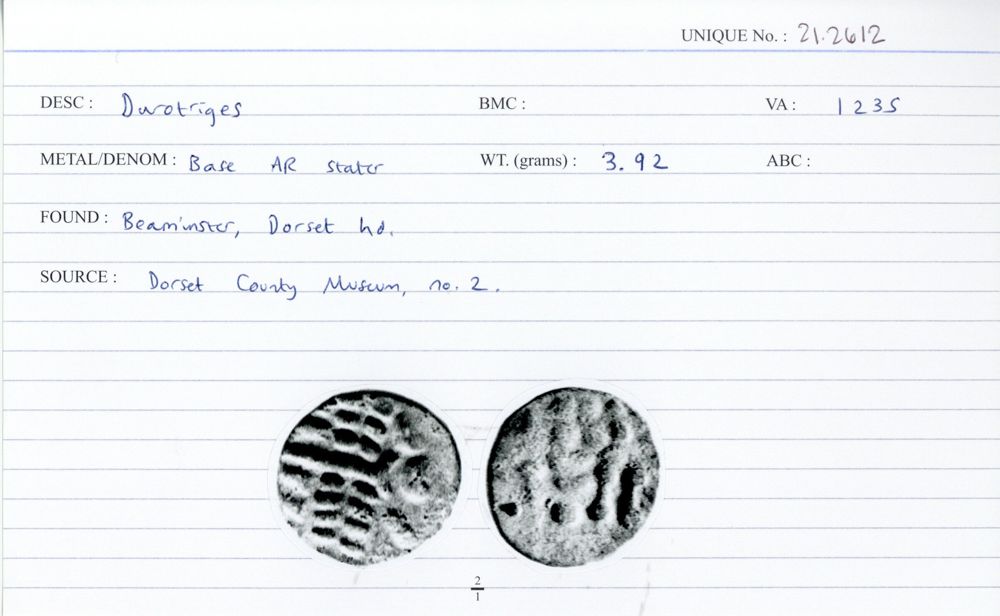 UNIQUE No. : 21.2612
DESC : Durotriges BMC : VA : 1235
METAL/DENOM : Base AR stater WT. (grams) : 3.92 ABC :
FOUND : Beaminster, Dorset hd.
SOURCE : Dorset County Museum, no. 2.
2
1